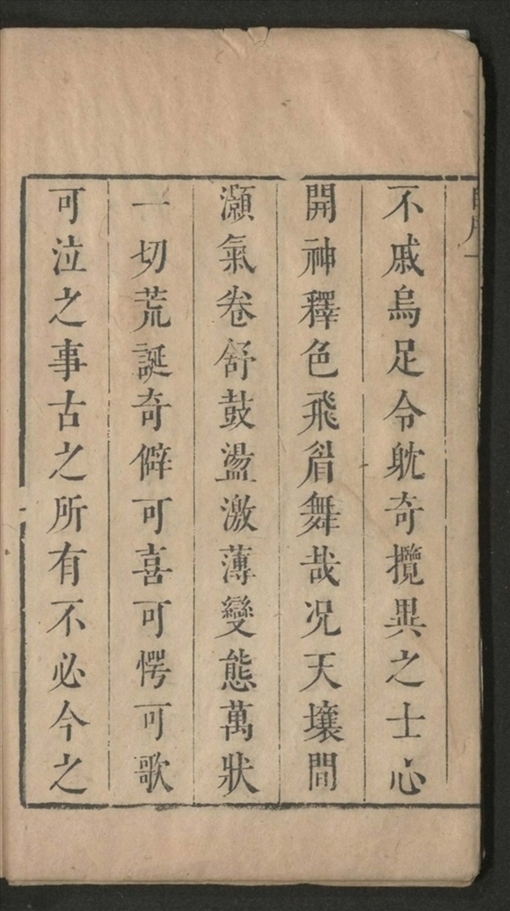 不戚烏足令躭奇攬異之士心
開神釋色飛眉舞哉况天壤間
灝氣卷舒鼓盪激薄變態萬狀
一切荒誕奇僻可喜可愕可歌
可泣之事古之所有不必今之